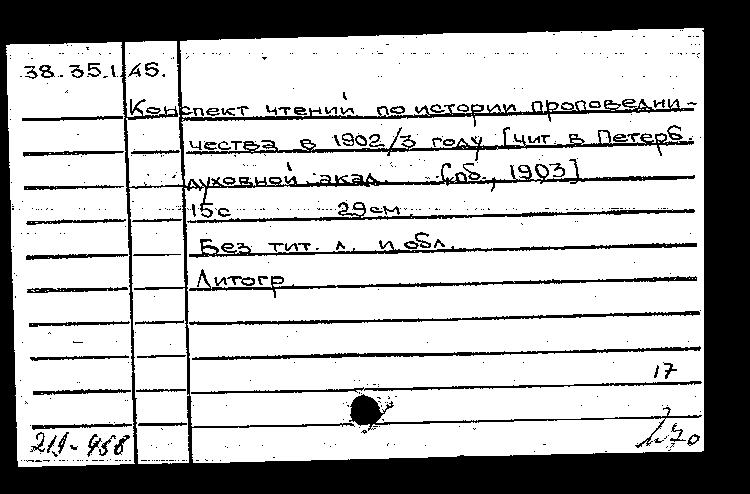 38.35.1.45.
Конспект чтений по истории проповедни-
чества в 1902/3 году [чит. в Петерб.
духовной акад. Спб., 1903]
15с 29см.
Без тит. л. и обл.
Литогр.
17
70